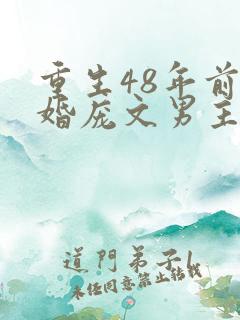 重生48年前
婚庞文男主
道門弟子1
未经同意禁止转载